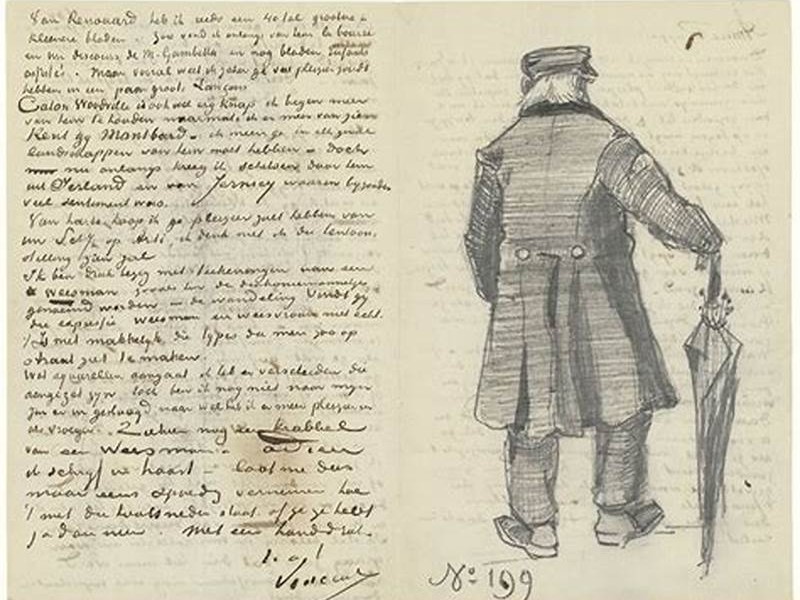 Van Renouard heb ik reeds een 40tal grootere &
kleinere bladen. Zoo vond ik onlangs van hem la bourse
en un discours de M. Gambetta en nog bladen Enfants
assistés. Maar vooral weet ik zeker ge veel pleizier zoudt
hebben in een paar groote Lançons
Caton Woodville is ook wel erg knap ik begon meer
van hem te houden naarmate ik er meer van zien
Kent gij Montbard. ik meen ge in elk geval
landschappen van hem moet hebben – doch
nu onlangs kreeg ik schetsen door hem
uit Ierland en van Jersey waarin bijzonder
veel sentiment was.
Van harte hoop ik ge pleizier zult hebben van
uw op Arti, ik denk met de
stelling zien zal
Ik ben druk bezig met teekeningen van een
weesman zooals hier de diakoniemannetjes
genoemd worden – de wandeling Vindt gij
die expressie weesman en weesvrouw niet echt.
't Is niet makkelijk die types die men zoo op
straat ziet te maken.
Wat aquarellen aangaat ik heb er verscheiden die
aangezet zijn toch ben ik nog niet naar mijn
zin er in geslaagd maar wel heb ik er meer pleizier in
als vroeger. Ziehier nog een krabbel
van een Weesman. adieu
ik schrijf in haast – laat me dus
maar eens spoedig vernemen hoe
't met die houtsneden staat of ge ze hebt
ja dan neen. Met een handdruk.
t. à t.
Vincent
No 199